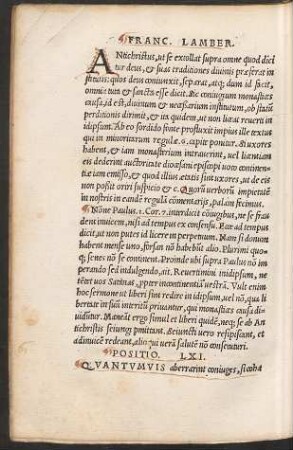 FRANC. LAMBER.
ANtichristus, ut se extollat supra omne quod dici
tur deus, & suas traditiones divinis præferat in
stitutis: quos deus coniunxit, separat, atq; dum id facit,
omnē tum & sanctū esse dicit. Sic coniugum monasticis
causa, id est, divinum & necessarium institutum, ob statūm
perditionis dirimit, & ux quidem, ut non liceat reverti in
idipsum. Ab eo sordido fonte profluxit impius ille textus
qui in minoritarum regulæ. 2. capite ponitur. Si uxores
habent, & iam monasterium intraverint, vel licentiam
eis dederint auctoritate diocæsani episcopi voto continen-
tiæ iam emisso, & quod illius ætatis sint uxores, ut de eis
non possit oriri suspicio &c. Quorū verborū impietatē
in nostris in eandē regulā cōmentarijs, palam fecimus.
Nōne Paulus. 1. Cor. 7. interdicit cōiugibus, ne se frau
dent invicem, nisi ad tempus ex consensu. Paulus ad tempus
dicit, at non putes id licere in perpetuum. Nam si donum
habent mense uno, forsan nō habebūt alio. Plurimi quo-
q; senes nō se continent. Proinde ubi supra Paulus nō im
perando sed indulgendo, ait. Revertimini inidipsum, ne
tētet vos Satanas, ppter incontinentiā vestrā. Vult enim
hoc sermone ut liberi sint redire in idipsum, vel nō, qua li
bertate in suū interitū privantur, qui monastica causa di
viduntur. Maneāt ergo simul et liberi quidē, neq; se ab An
tichristis seiungi permittant. Seiuncti vero resipiscant, et
adinvicē redeant, alioqui verā salutē nō consecuturi.
POSITIO. LXI.
QVANTVMVIS aberrarint coniuges, si ad ha